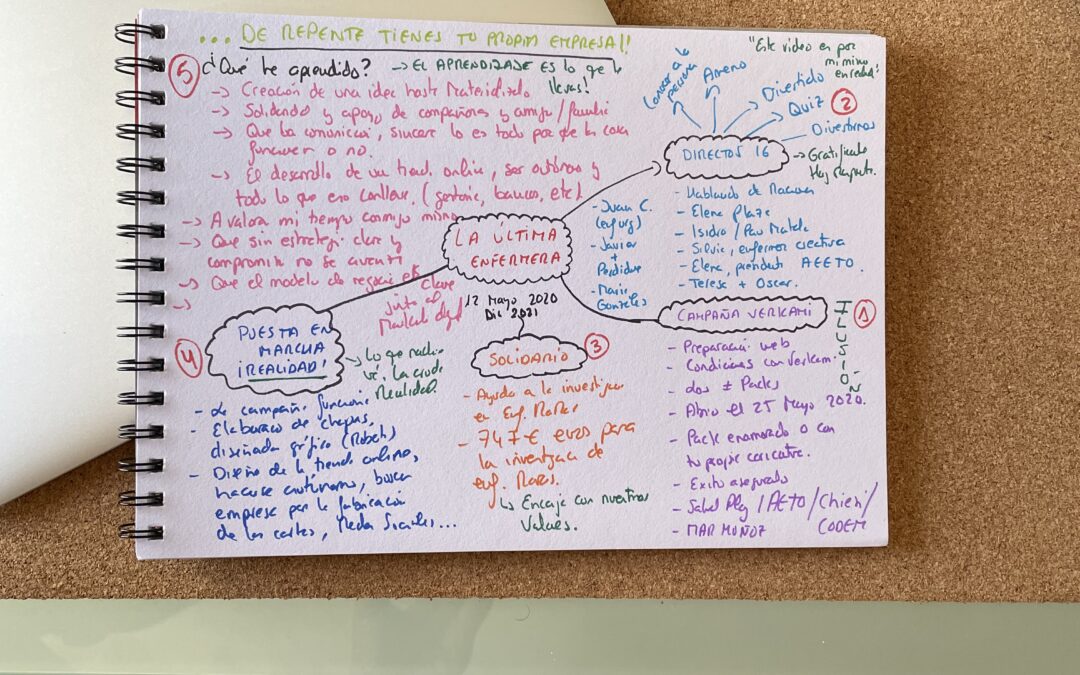 ... DE REPENTE TIENES TU PROPIA EMPRESA!!
5
¿Qué he aprendido? → EL APRENDIZAJE ES lo que te
llevas!
→ Creación de una idea hasta Materializarlo
→ Solidaridad y apoyo de compañeros y amigos/familia
→ Que la comunicación, lo es todo para que la cosa
funcione o no.
→ El desarrollo de una tienda online, ser autónomo y
todo lo que eso conlleva. (gestoria, bancos, etc)
→ A valorar mi tiempo conmigo misma
→ Que sin estrategia clara y
compromiso no se
→ Que el modelo de negocio es clave
junto al
→
LA ÚLTIMA
ENFERMERA
12 Mayo 2020
Dic 2021
"Este video en por
mi mismo
Conocer a la
persona
Ameno
Divertido
Quiz
2
Divertirnos
DIRECTOS IG
→ Gratificante
- Hablando de
- Elena Plaza
- Isidro / Pau Matalap
- Silvia, enfermera creativa
- Elena, presidenta AEETO.
- Teresa + Oscar.
- Juan C.
- Javier
+
Perdidue
- María
González
CAMPAÑA VERKAMI
1
ILUSIÓN
- Preparación web
- Condiciones con Verkami.
- Los ± Packs
- Abrió el 25 Mayo 2020.
- Pack enamorado o con
tu propia caricatura.
- Exito asegurado
- Salud Play / AETO / Chiesi /
CODEM
- MAR MUÑOZ
SOLIDARIO
3
- Ayuda a la investigación
en Enf. Raras
- 747€ euros para
la investigación de
enf. Raras.
↳ Encaje con nuestros
Valores.
4
PUESTA EN
MARCHA
¡REALIDAD!
→ Lo que nadie
ve, la cruda
Realidad.
- La campaña funciona
- Elaboración de chapas,
diseñada gráfica
- Diseño de la tienda online,
hacerse autónomo, buscar
empresa para la fabricación
de las cartas, Redes Sociales...